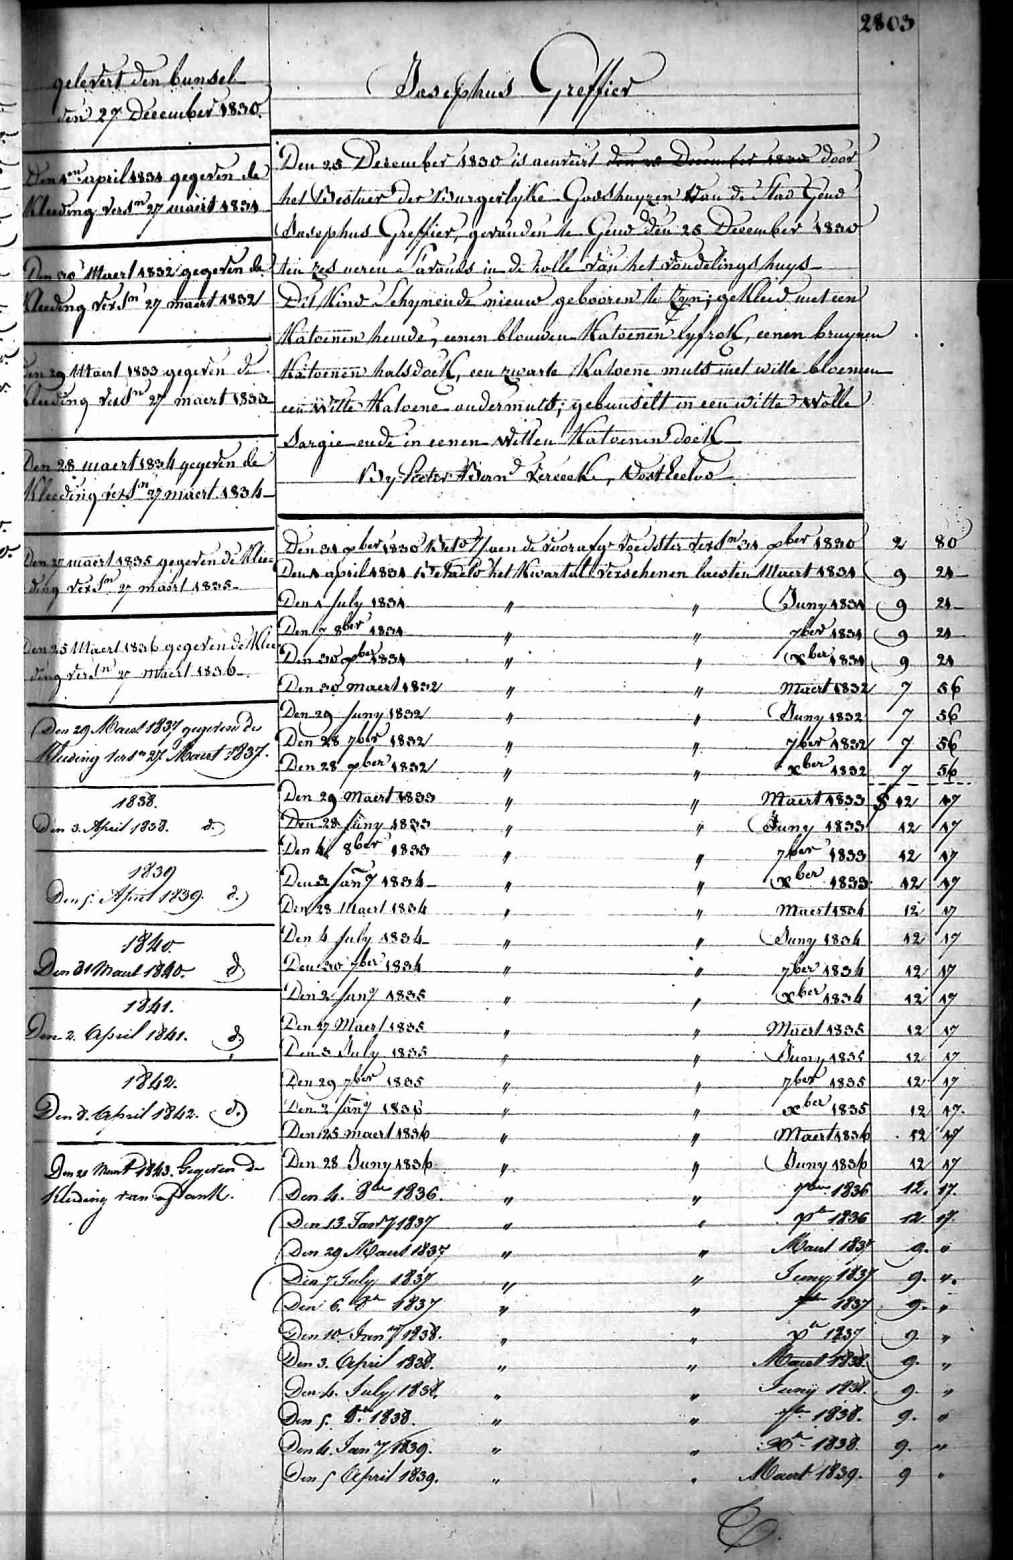 2803
gelevert den bunsel
den 27 December 1830.
Den 1en april 1831 gegeven de
Kleeding versn 27 maert 1831
Den 30 Maert 1832 gegeven de
Kleeding versn 27 maert 1832
Den 29 Maert 1833 gegeven de
Kleeding versn 27 maert 1833
Den 28 maert 1834 gegeven de
Kleeding versn 27 maert 1834
Den 27 maert 1835 gegeven de Klee-
ding versn 27 maert 1835
Den 25 Maert 1836 gegeven de Klee
ding versn 27 maert 1836
Den 29 Maert 1837 gegeven de
Kleeding versn 27 Maert 1837.
1838.
Den 3. April 1838. d.
1839
Den 5. April 1839. d.
1840.
Den 31 Maert 1840. d
1841.
Den 2. April 1841. d
1842.
Den 8. April 1842. d.
Den 21 Maert 1843. Gegeven de
Kleeding van
Josephus Greffier
Den 25 December 1830 is aenveirt den 25 December 1830 door
het Bestuer der Burgerlyke Godshuyzen van de Stad Gend
Josephus Greffier, gevonden te Gend den 25 December 1830
ten zes ueren s'avonds in de rolle van het vondelingshuys
Dit Kind Schynende nieuw gebooren te Zyn; geKleed met een
Katoenen hemde, eenen blouwen Katoenen lyfroK, eenen bruynen
Katoenen halsdoeK, een zwarte Katoene muts met witte bloemen
een witte Katoene ondermuts; gebunselt in een witte wolle
Sargie ende in eenen witten Katoenen doeK
By Pieter Bernd, Oost Eecloo
Den 31 xber 1830 aen de voorafge voedster versn 31 xber 1830 2 80
Den 1 april 1831 het Kwartal verschenen laesten Maert 1831 9 21
Den 1 July 1831 " " Juny 1831 9 21
Den 7 8ber 1831 " " 7ber 1831 9 21
Den 30 xber 1831 " " xber 1831 9 21
Den 30 maert 1832 " " Maert 1832 7 56
Den 29 Juny 1832 " " Juny 1832 7 56
Den 28 7ber 1832 " " 7ber 1832 7 56
Den 28 xber 1832 " " xber 1832 7 56
Den 29 Maert 1833 " " Maert 1833 12 17
Den 28 Juny 1833 " Juny 1833 12 17
Den 4 8ber 1833 " " 7ber 1833 12 17
Den 3 Jany 1834 " " xber 1833 12 17
Den 28 Maert 1834 " " Maert 1834 12 17
Den 4 July 1834 " " Juny 1834 12 17
Den 30 7ber 1834 " " 7ber 1834 12 17
Den 2 Jany 1835 " " xber 1834 12 17
Den 17 Maert 1835 " " Maert 1835 12 17
Den 3 July 1835 " " Juny 1835 12 17
Den 29 7ber 1835 " " 7ber 1835 12 17
Den 2 Jany 1836 " " xber 1835 12 17.
Den 25 maert 1836 " " Maert 1836 12 17
Den 28 Juny 1836 " " Juny 1836 12 17
Den 4. 8ber 1836. " " 7ber 1836 12. 17.
Den 13. Jany 1837 " " xr 1836 12 17.
Den 29 Maert 1837 " " Maert 1837 9. "
Den 7 July 1837 " " Juny 1837 9. ".
Den 6. 8r 1837 " " 7r 1837 9. "
Den 10. Jany 1838. " " xr 1837 9 "
Den 3. April 1838. " " Maert 1838. 9. "
Den 4. July 1838. " " Juny 1838. 9. "
Den 5. 8r 1838. " " 7r 1838. 9. "
Den 4. Jany 1839. " " xr 1838. 9. "
Den 5 April 1839. " " Maert 1839. 9 "